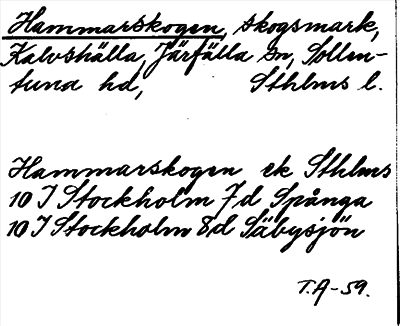 Hammarskogen, skogsmark,
Kalvshälla, Järfälla sn, Sollen-
tuna hd, Sthlms l.
Hammarskogen ek Sthlms
10 I Stockholm 7d Spånga
10 I Stockholm 8d Säbysjön
T.A-59.